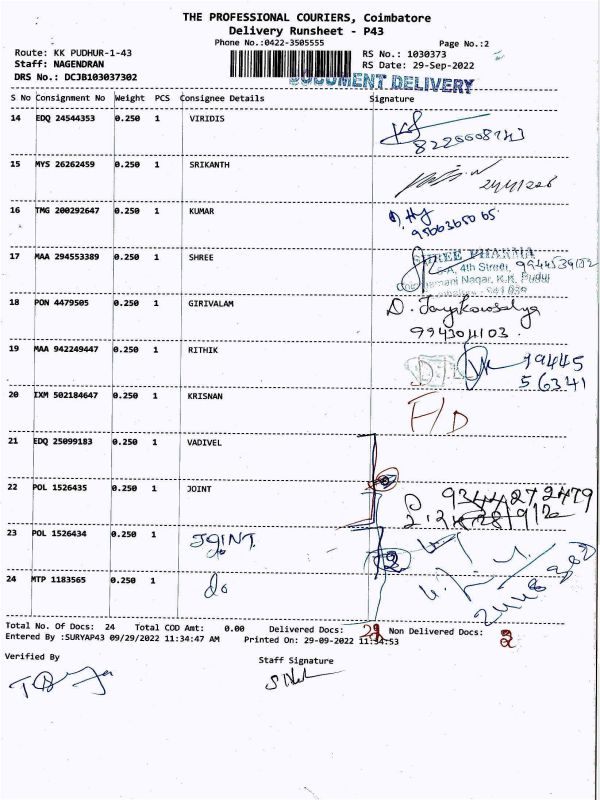 THE PROFESSIONAL COURIERS, Coimbatore
Delivery Runsheet - P43
Phone No.:0422-3505555 Page No.:2
Route: KK PUDHUR-1-43 RS No.: 1030373
Staff: NAGENDRAN RS Date: 29-Sep-2022
DRS No.: DCJB103037302 DOCUMENT DELIVERY
S No Consignment No Weight PCS Consignee Details Signature
14 EDQ 24544353 0.250 1 VIRIDIS
15 MYS 26262459 0.250 1 SRIKANTH
16 TMG 200292647 0.250 1 KUMAR
17 MAA 294553389 0.250 1 SHREE
SHREE PHARMA
4th Street,
Nagar, K.K. Pudur
18 PON 4479505 0.250 1 GIRIVALAM
9943041103
19 MAA 942249447 0.250 1 RITHIK
79445
56341
20 IXM 502184647 0.250 1 KRISNAN F/D
21 EDQ 25099183 0.250 1 VADIVEL
22 POL 1526435 0.250 1 JOINT 9344272479
23 POL 1526434 0.250 1 JOINT
24 MTP 1183565 0.250 1 do
Total No. Of Docs: 24 Total COD Amt: 0.00 Delivered Docs: Non Delivered Docs: 2
Entered By :SURYAP43 09/29/2022 11:34:47 AM Printed On: 29-09-2022 11:34:53
Verified By Staff Signature